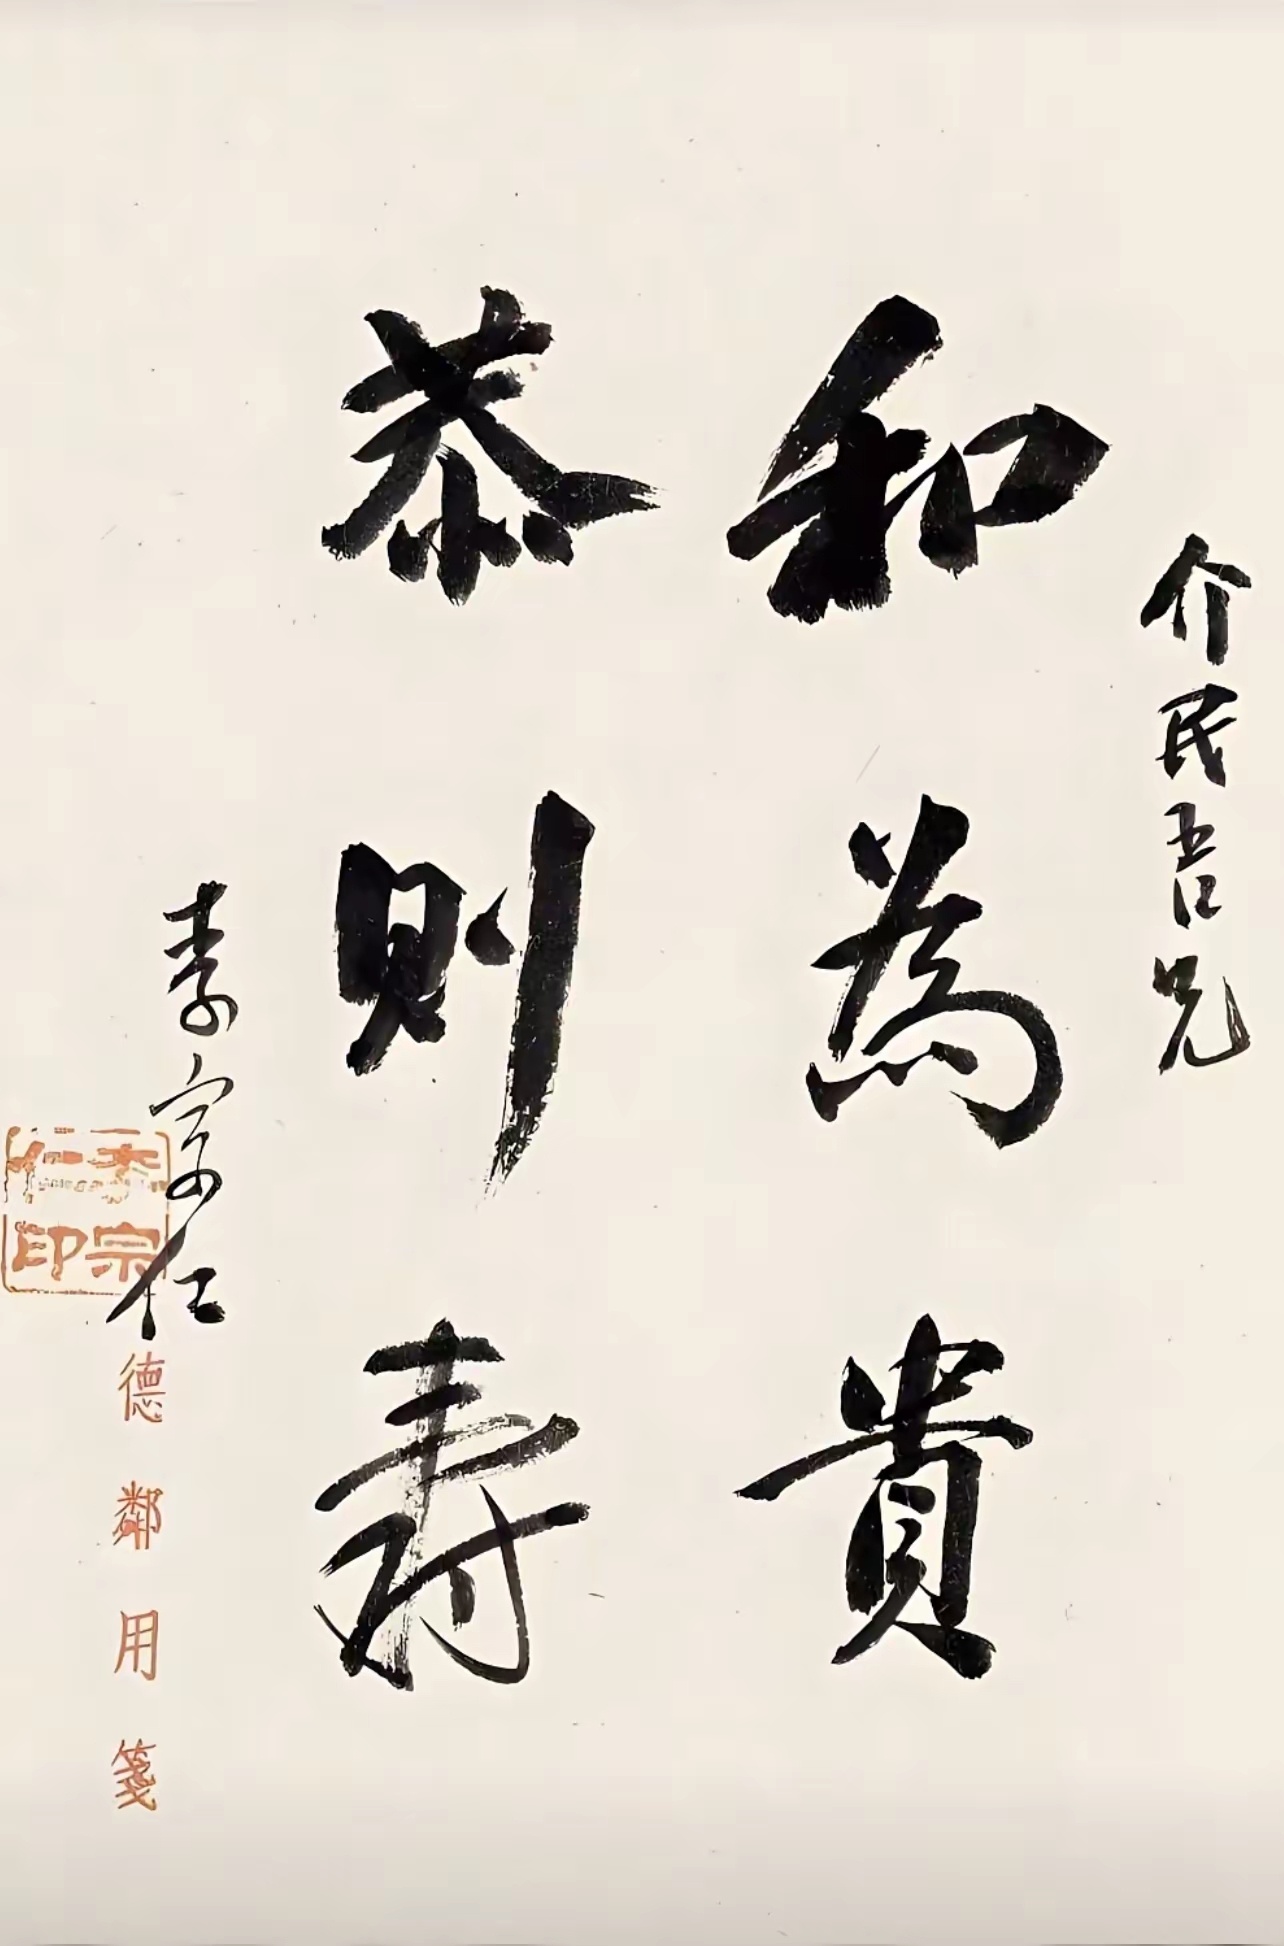 介民吾兄
和為貴
恭則寿
李宗仁
李宗仁印
德鄰用箋